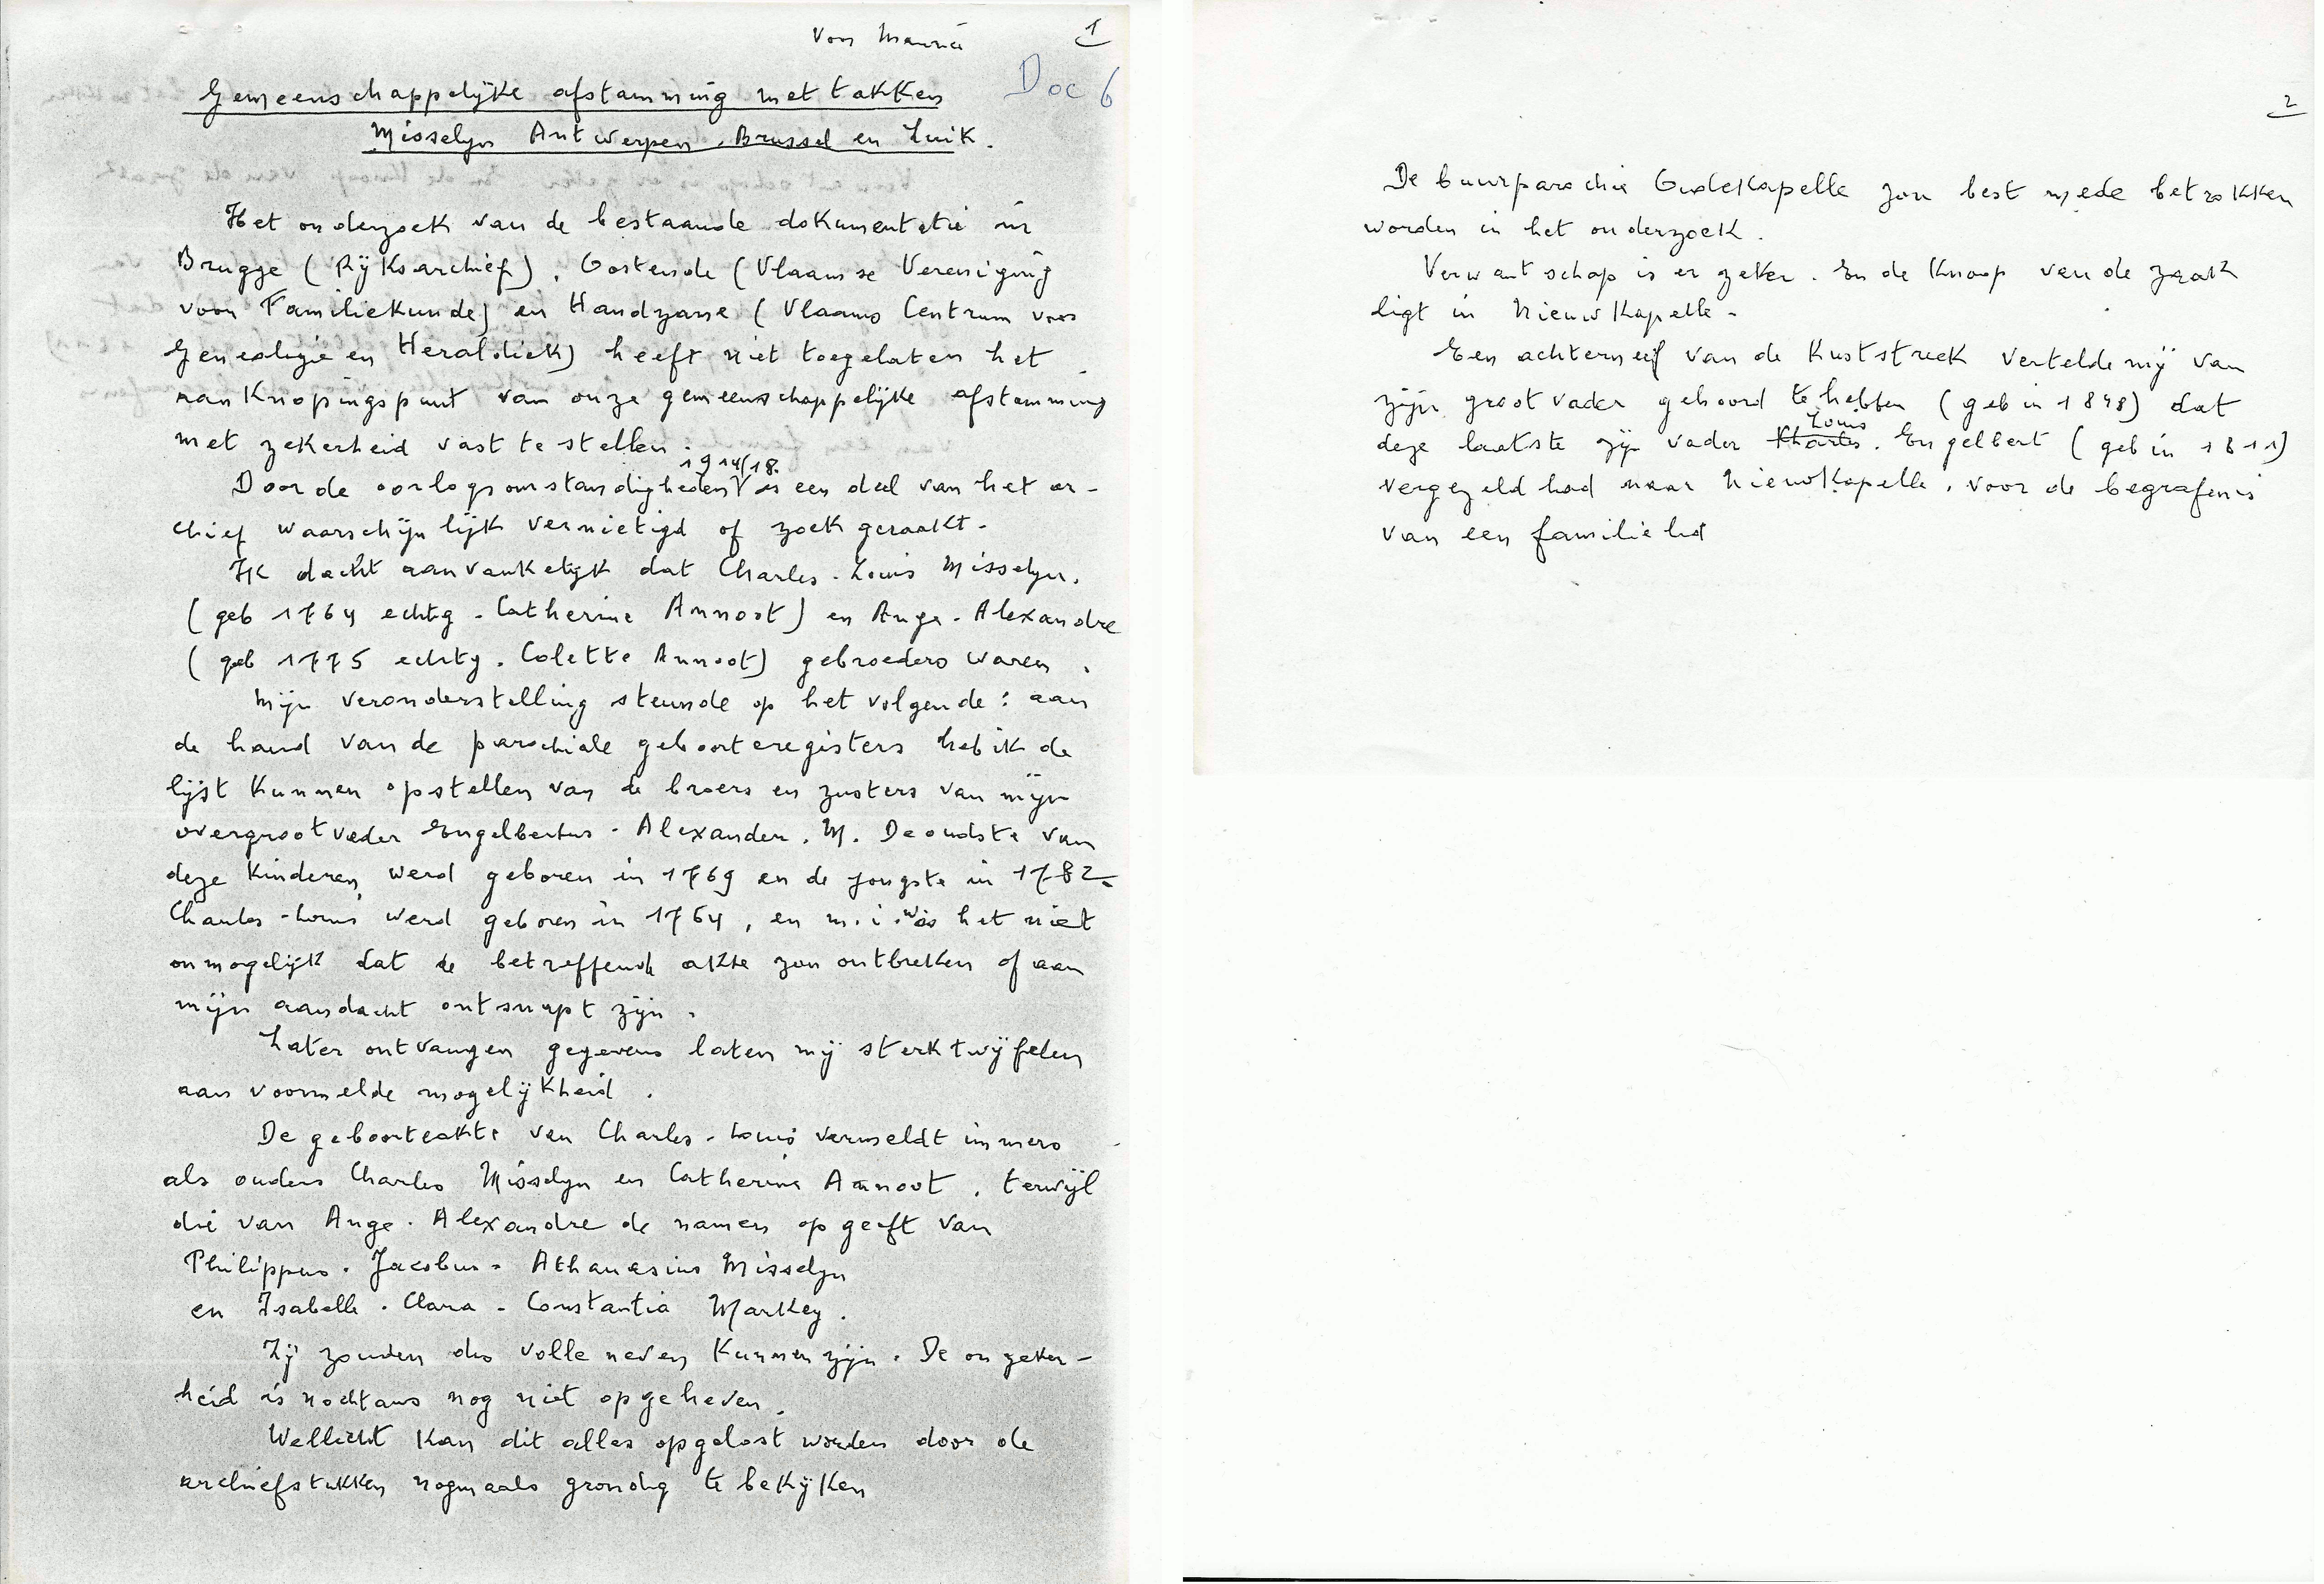 voor Maurice
1
Doc 6
Gemeenschappelijke afstamming met takken
Misselyn Antwerpen, Brussel en Luik.
Het onderzoek van de bestaande dokumentatie in
Brugge (Rijksarchief), Oostende (Vlaamse Vereniging
voor Familiekunde) en Handzame (Vlaams Centrum voor
Genealogie en Heraldiek) heeft niet toegelaten het
aanknopingspunt van onze gemeenschappelijke afstamming
met zekerheid vast te stellen.
Door de oorlogsomstandigheden 1914/18 is een deel van het ar-
chief waarschijnlijk vernietigd of zoek geraakt.
Ik dacht aanvankelijk dat Charles-Louis Misselyn.
(geb 1764 echtg. Catherine Annoot) en Ange-Alexandre
(geb 1775 echtg. Colette Annoot) gebroeders waren.
Mijn veronderstelling steunde op het volgende: aan
de hand van de parochiale geboorteregisters heb ik de
lijst kunnen opstellen van de broers en zusters van mijn
overgrootvader Engelbertus-Alexander. M. De oudste van
deze kinderen werd geboren in 1769 en de jongste in 1782.
Charles-Louis werd geboren in 1764, en m.i. was het niet
onmogelijk dat de betreffende akte zou ontbreken of aan
mijn aandacht ontsnapt zijn.
Later ontvangen gegevens laten mij sterk twijfelen
aan voormelde mogelijkheid.
De geboorteakte van Charles-Louis vermeldt immers
als ouders Charles Misselyn en Catherine Annoot, terwijl
die van Ange-Alexandre de namen opgeeft van
Philippus-Jacobus-Athanasius Misselyn
en Isabelle-Clara-Constantia Markey.
Zij zouden dus volle neven kunnen zijn. De onzeker-
heid is nochtans nog niet opgeheven.
Wellicht kan dit alles opgelost worden door de
archiefstukken nogmaals grondig te bekijken
2
De buurparochie Oudekapelle zou best mede betrokken
worden in het onderzoek.
Verwantschap is er zeker. En de knoop van de zaak
ligt in Nieuwkapelle.
Een achterneef van de Kuststreek vertelde mij van
zijn grootvader gehoord te hebben (geb in 1848) dat
deze laatste zijn vader Charles Louis. Engelbert (geb in 1811)
vergezeld had naar Nieuwkapelle, voor de begrafenis
van een familielid